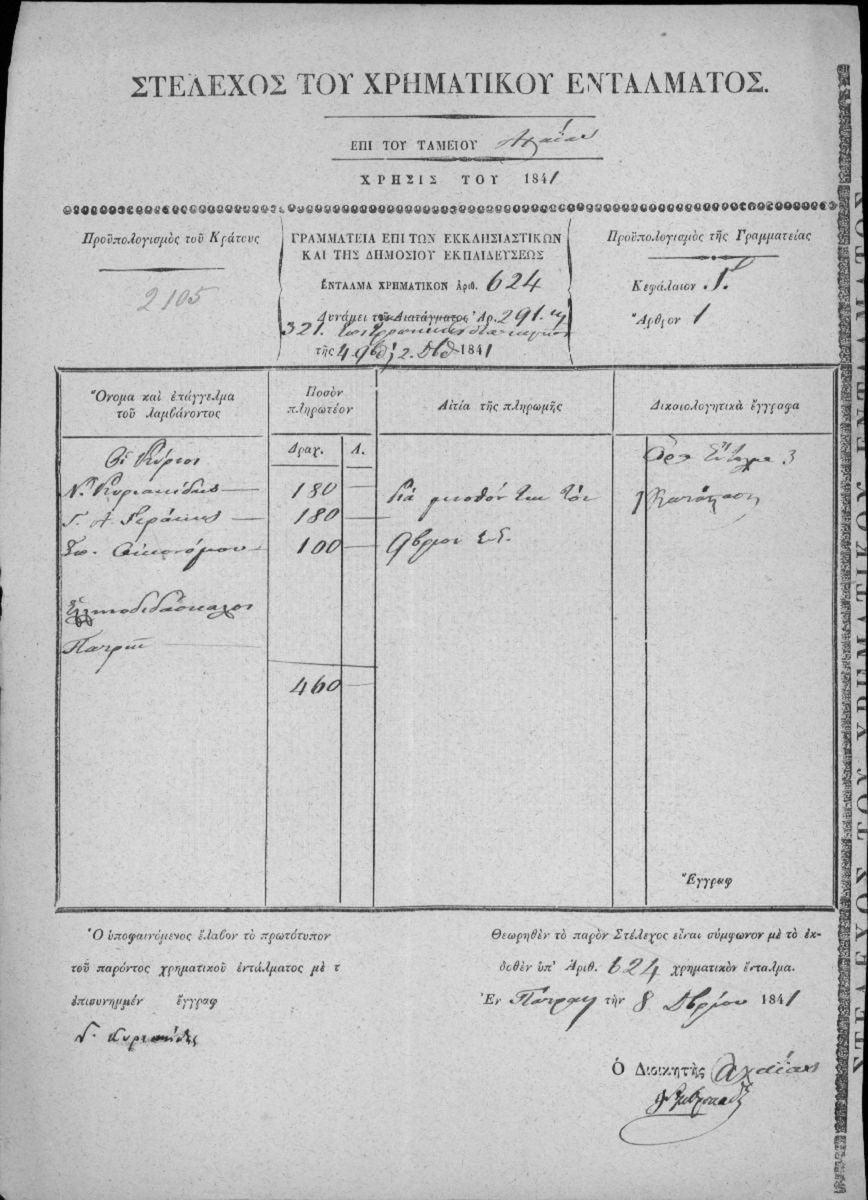 ΣΤΕΛΕΧΟΣ ΤΟΥ ΧΡΗΜΑΤΙΚΟΥ ΕΝΤΑΛΜΑΤΟΣ.
ΕΠΙ ΤΟΥ ΤΑΜΕΙΟΥ Ἀχαΐας
ΧΡΗΣΙΣ ΤΟΥ 1841
Προϋπολογισμὸς τοῦ Κράτους
2105
ΓΡΑΜΜΑΤΕΙΑ ΕΠΙ ΤΩΝ ΕΚΚΛΗΣΙΑΣΤΙΚΩΝ
ΚΑΙ ΤΗΣ ΔΗΜΟΣΙΟΥ ΕΚΠΑΙΔΕΥΣΕΩΣ
ΕΝΤΑΛΜΑ ΧΡΗΜΑΤΙΚΟΝ ἀριθ. 624
Δυνάμει τοῦ Διατάγματος Ἀρ. 291. καὶ
321.
τῆς 4 9βρ. 2. Δβρ 1841
Προϋπολογισμὸς τῆς Γραμματείας
Κεφάλαιον Γ.
Ἄρθρον 1
Ὄνομα καὶ ἐπάγγελμα
τοῦ λαμβάνοντος
Ποσὸν
πληρωτέον
Αἰτία τῆς πληρωμῆς
Δικαιολογητικὰ ἔγγραφα
Δραχ. Λ.
Οἱ Κύριοι
Ν. Κυριακίδης 180 διὰ μισθόν των τὸν
Γ. Α. Γεράκης 180
Οἰκονόμου 100 9βριον ἐ.ἔ.
Ὅρα Ἔνταλμα 3
1 Κατάστασις
Ἑλληνοδιδάσκαλοι
Πατρῶν
460
Ἔγγραφ
Ὁ ὑποφαινόμενος ἔλαβον τὸ πρωτότυπον
τοῦ παρόντος χρηματικοῦ ἐντάλματος μὲ τ
ἐπισυνημμέν ἔγγραφ
Ν. Κυριακίδης
Θεωρηθὲν τὸ παρὸν Στέλεχος εἶναι σύμφωνον μὲ τὸ ἐκ-
δοθὲν ὑπ' Ἀριθ. 624 χρηματικὸν ἔνταλμα.
Ἐν Πάτραις τὴν 8 Δβρίου 1841
Ὁ Διοικητὴς Ἀχαΐας
ΣΤΕΛΕΧΟΣ ΤΟΥ ΧΡΗΜΑΤΙΚΟΥ ΕΝΤΑΛΜΑΤΟΣ